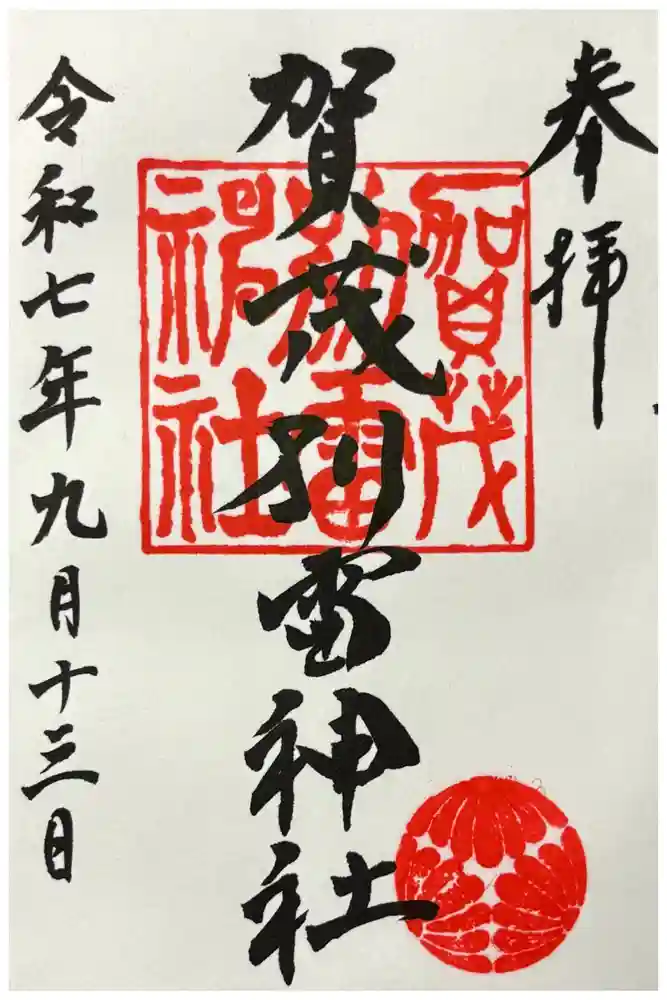 奉拝
賀茂別雷神社
賀茂
別雷
神社
令和七年九月十三日